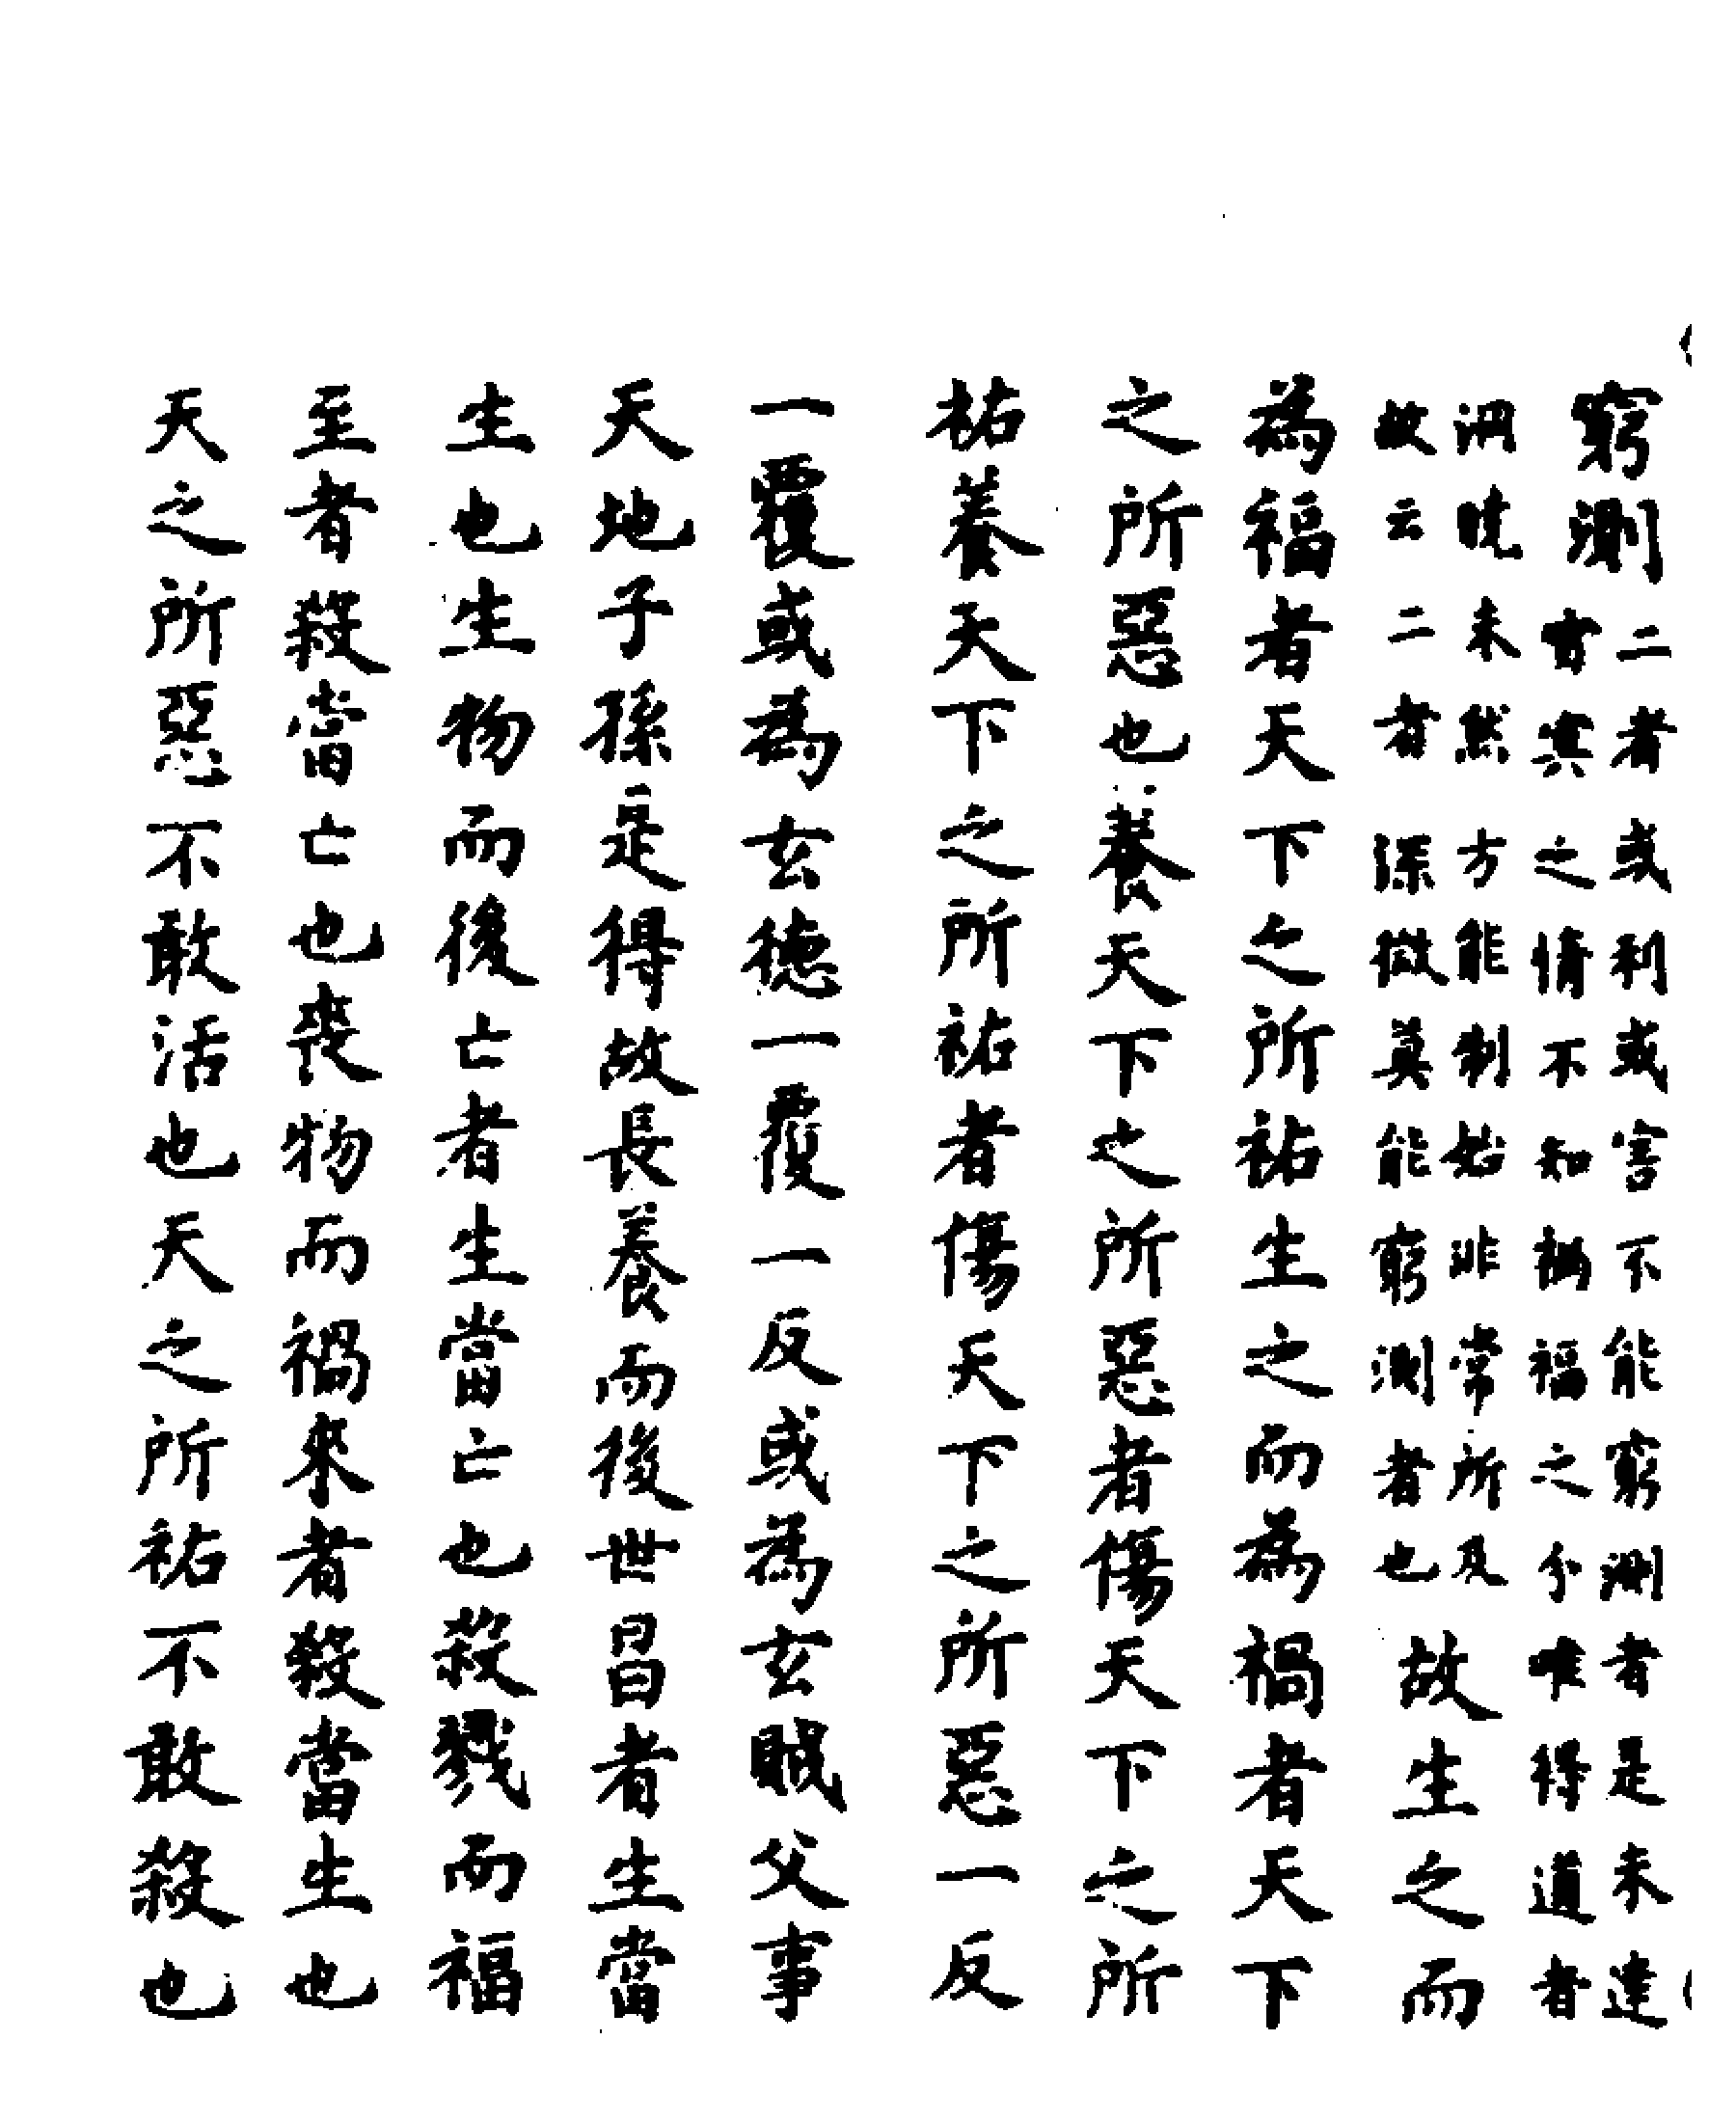 窮測
二者或利或害不能窮測者是未達
窅冥之情不知禍福之分唯得道者
洞曉未然方能制始非常所及
故云二者深微莫能窮測者也
故生之而
為福者天下之所祐生之而為禍者天下
之所惡也養天下之所惡者傷天下之所
祐養天下之所祐者傷天下之所惡一反
一覆或為玄徳一覆一反或為玄賊父事
天地子孫是得故長養而後世昌者生當
生也生物而後亡者生當亡也殺戮而福
至者殺當亡也喪物而禍來者殺當生也
天之所惡不敢活也天之所祐不敢殺也